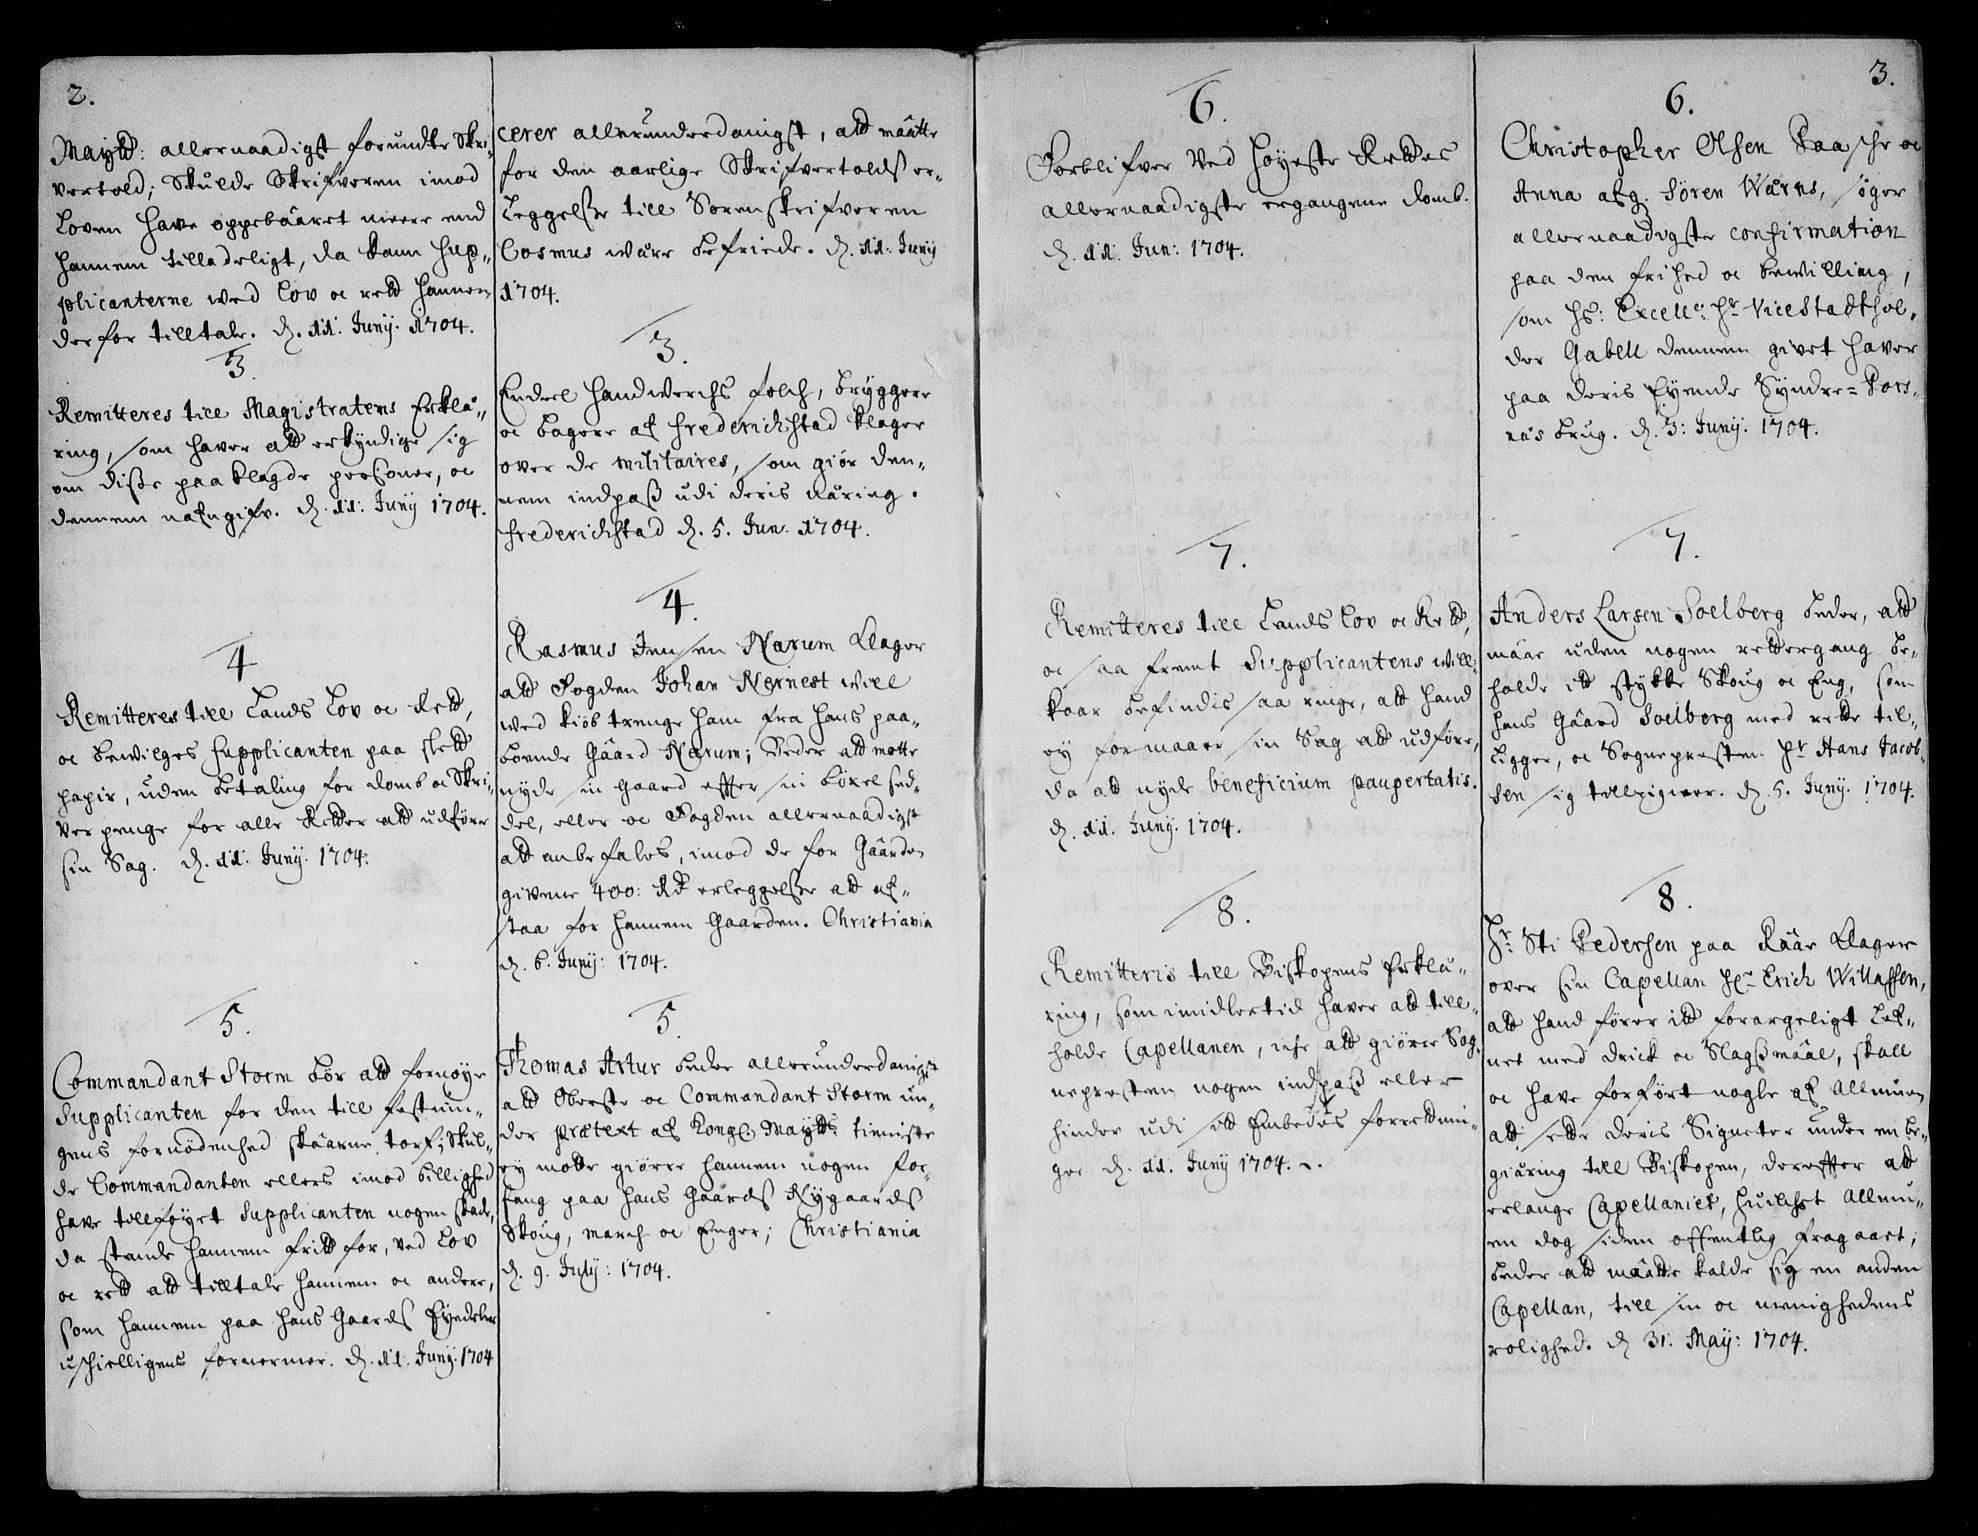 2.
Maytt: allernaadigst forundte Skri-
vertold; Skulde Skrifveren imod
Loven have oppebaaret meere end
hannem tilladeligt, da kand Sup-
plicanterne wed Lov oc rett hannem
derfor tilltale. d. 11. Junÿ. 1704.
3.
Remitteres till Magistratens Erklæ-
ring, som haver att erkyndige sig
om disse paaklagde persohner, oc
dennem nafngifv. d. 11: Junÿ 1704.
4
Remitteres till Lands Lov oc Rett,
oc bewilges Supplicanten paa slett
papir, uden betaling for domb oc Skri-
verpenge for alle Retter att udføre
sin Sag. d. 11: Junÿ. 1704.
5.
Commandant Storm bør att fornøye
Supplicanten for den till fæstnin-
gens fornødenhed skaarne torf; Skul-
de Commandanten ellers imod billighed
have tillføyet Supplicanten nogen skade,
da stande hannem fritt for, ved Lov
oc rett att tilltale hannem oc andere,
som hannem paa hans Gaards Eyendeler
uskielligens fornermer. d. 11. Junÿ. 1704
cerer allerunderdanigst, att maatte
for den aarlige Skrifvertolds er-
leggelsse till Sorenskrifveren
Cosmus wære befriede. d. 11: Junÿ
1704.
3.
Endeel Handwerchs folch, bryggere
oc bagere af Frederichstad klager
over de militaires, som giør den-
nem indpass udi deris næring.
Frederichstad d. 5. Jun. 1704.
4.
Rasmus Jensen Narum klager
att Fogden Johan Nørnest will
wed kiøb trenge ham fra hans paa-
boende Gaard Narum; Beder att motte
nyde sin Gaard effter sin böxel sed-
del, eller oc Fogden allernaadigst
att anbefales, imod de for Gaarden
givene 400: Rdr erleggelsse att af-
staa for hannem Gaarden. Christiania
d. 6. Junÿ: 1704.
5.
Thomas Artur beder allerunderdanigst
att Oberste oc Commandant Storm un-
der prætext af Kongl. Maytts tieniste
ey motte giørre hannem nogen for-
fang paa hans Gaards Rygaards
Skoug, march oc Enger; Christiania
d. 9. July: 1704.
6.
Forblifver Ved Høyeste Rettes
allernaadigste ergangene domb.
d. 11. Jun: 1704.
7.
Remitteres till Lands Lov oc Rett,
oc saa fremt Supplicantens will-
kaar befindis saa ringe, att hand
ey formaaer sin Sag att udføre,
da att nyde beneficium paupertatis.
d. 11. Junÿ. 1704.
8.
Remitteris till Biskopens Erklæ-
ring, som imidlertid haver att till-
holde Capellanen, icke att giørre Sog-
nepresten nogen indpass eller
hinder udi sitt Embedes forrettnin-
ger d. 11. Junÿ 1704.
3.
6.
Christopher Olsen Paasche oc
Anna afg. Søren Wærns, søger
allernaadigste confirmation
paa den frihed oc bewilling,
som Hs: Excell: Hr Vice Stadthol-
der Gabell dennem givet haver
paa deris Eyende Syndre-Pors-
næs brug. d. 3: Junÿ. 1704.
7.
Anders Larsen Soelberg beder, att
maae uden nogen rettergang be-
holde itt stykke Skoug oc Eng, som
hans Gaard Soelberg med rette til-
ligger, oc Sognepresten Hr Hans Jacob-
sen sig tilleigner. d. 5. Junÿ. 1704.
8.
Hr. Sti Pedersen paa Raae klager
over sin Capellan Hr Erich Willassen,
att hand fører itt forargeligt lef-
net med drick oc Slagsmaal, skall
oc have forført nogle af Allmuen
att sette deris Signeter under en be-
giæring till Biskopen, dereffter att
erlange Capellaniet, huilchet Allmu-
en dog siden offentlig fragaaet;
beder att maatte kalde sig en anden
Capellan, till sin oc menighedens
rolighed. d 31. May: 1704.